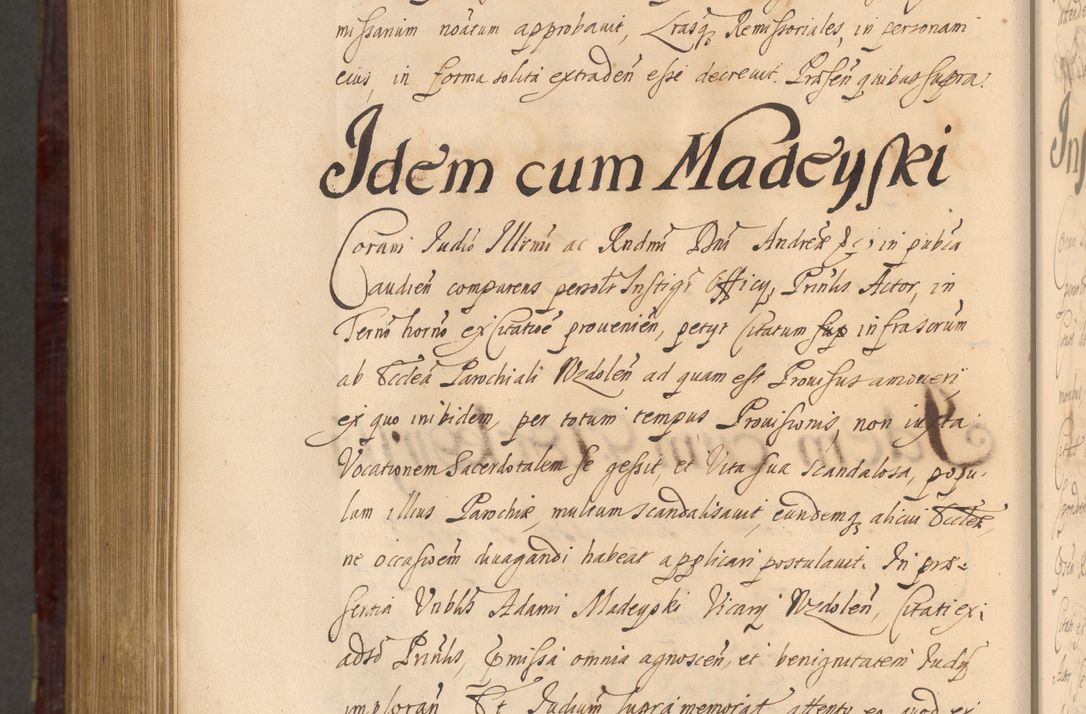 missarum noatum approbavit, Lrasq Remissoriales, in personam
eius, in forma solita extraden esse decrevit. Præsen quibus supra.
Idem cum Madeyski
Coram Judio Illrmi ac Rndmi Dni Andreæ &c, in pubca
audien comparens persolr Instigr Officy, Prinlis Actor, in
Termo horno ex Citatioe provenien, petyt Citatum sup infrascrum
ab Eccleā Parochiali Wzdolen ad quam est Provisus amoveri,
ex quo inibidem, per totum tempus Provisionis, non iuxta
Vocationem Sacerdotalem se gessit, et Vita sua scandalosa, popu-
lum illius Parochiæ, multum scandalisavit, eundemq alicui Ecclæ,
ne occasioem divagandi habeat applicari postulavit. In præ-
sentia Vnblis Adami Madeyski Vicary Wzdolen, Citati ex
adso Prinlis, Pmissa omnia agnoscen, et benignitatem Judy
imploran Et Judium supra memorat attento eo quod ex